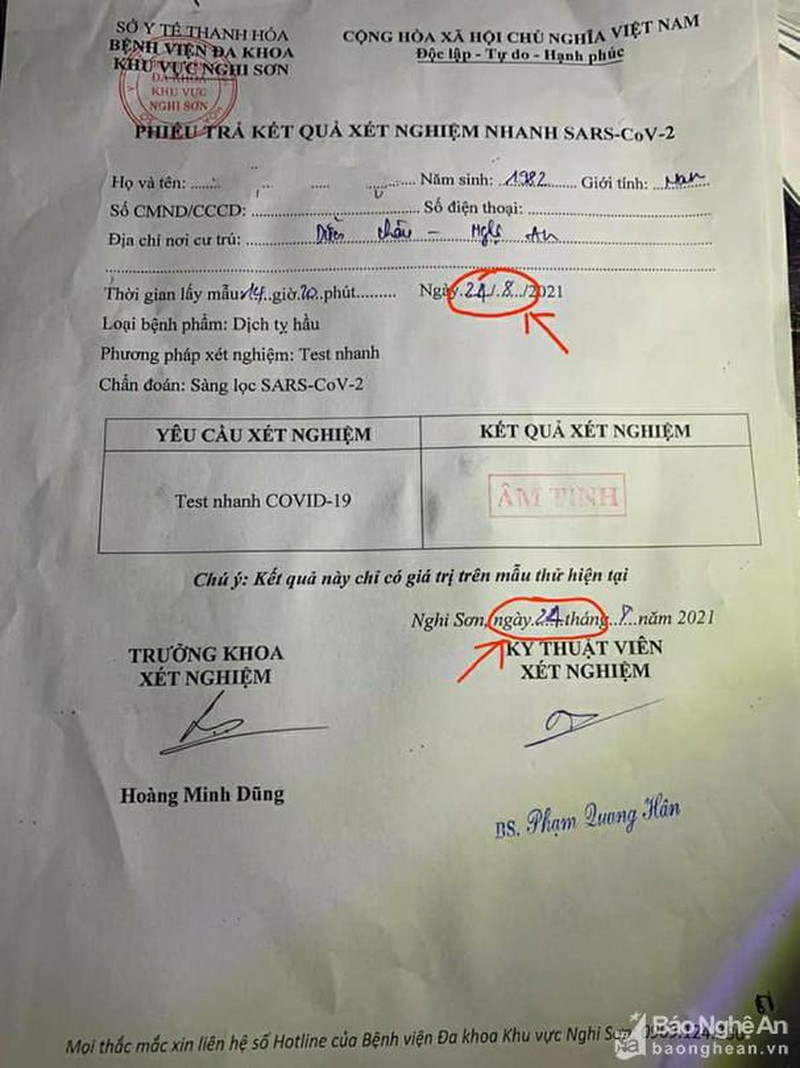 SỞ Y TẾ THANH HÓA
BỆNH VIỆN ĐA KHOA
KHU VỰC NGHI SƠN
CỘNG HÒA XÃ HỘI CHỦ NGHĨA VIỆT NAM
Độc lập - Tự do - Hạnh phúc
ĐA KHOA
KHU VỰC
NGHI SƠN
PHIẾU TRẢ KẾT QUẢ XÉT NGHIỆM NHANH SARS-CoV-2
Họ và tên: Năm sinh: 1982 Giới tính: Nam
Số CMND/CCCD: Số điện thoại:
Địa chỉ nơi cư trú: Diễn Châu - Nghệ An
Thời gian lấy mẫu 14 giờ 20 phút Ngày 24/8/2021
Loại bệnh phẩm: Dịch tỵ hầu
Phương pháp xét nghiệm: Test nhanh
Chẩn đoán: Sàng lọc SARS-CoV-2
YÊU CẦU XÉT NGHIỆM KẾT QUẢ XÉT NGHIỆM
Test nhanh COVID-19 ÂM TÍNH
Chú ý: Kết quả này chỉ có giá trị trên mẫu thử hiện tại
Nghi Sơn, ngày 24 tháng 8 năm 2021
TRƯỞNG KHOA
XÉT NGHIỆM
KỸ THUẬT VIÊN
XÉT NGHIỆM
Hoàng Minh Dũng
BS. Phạm Quang Hân
Mọi thắc mắc xin liên hệ số Hotline của Bệnh viện Đa khoa Khu vực Nghi Sơn
Báo Nghệ An
baonghean.vn